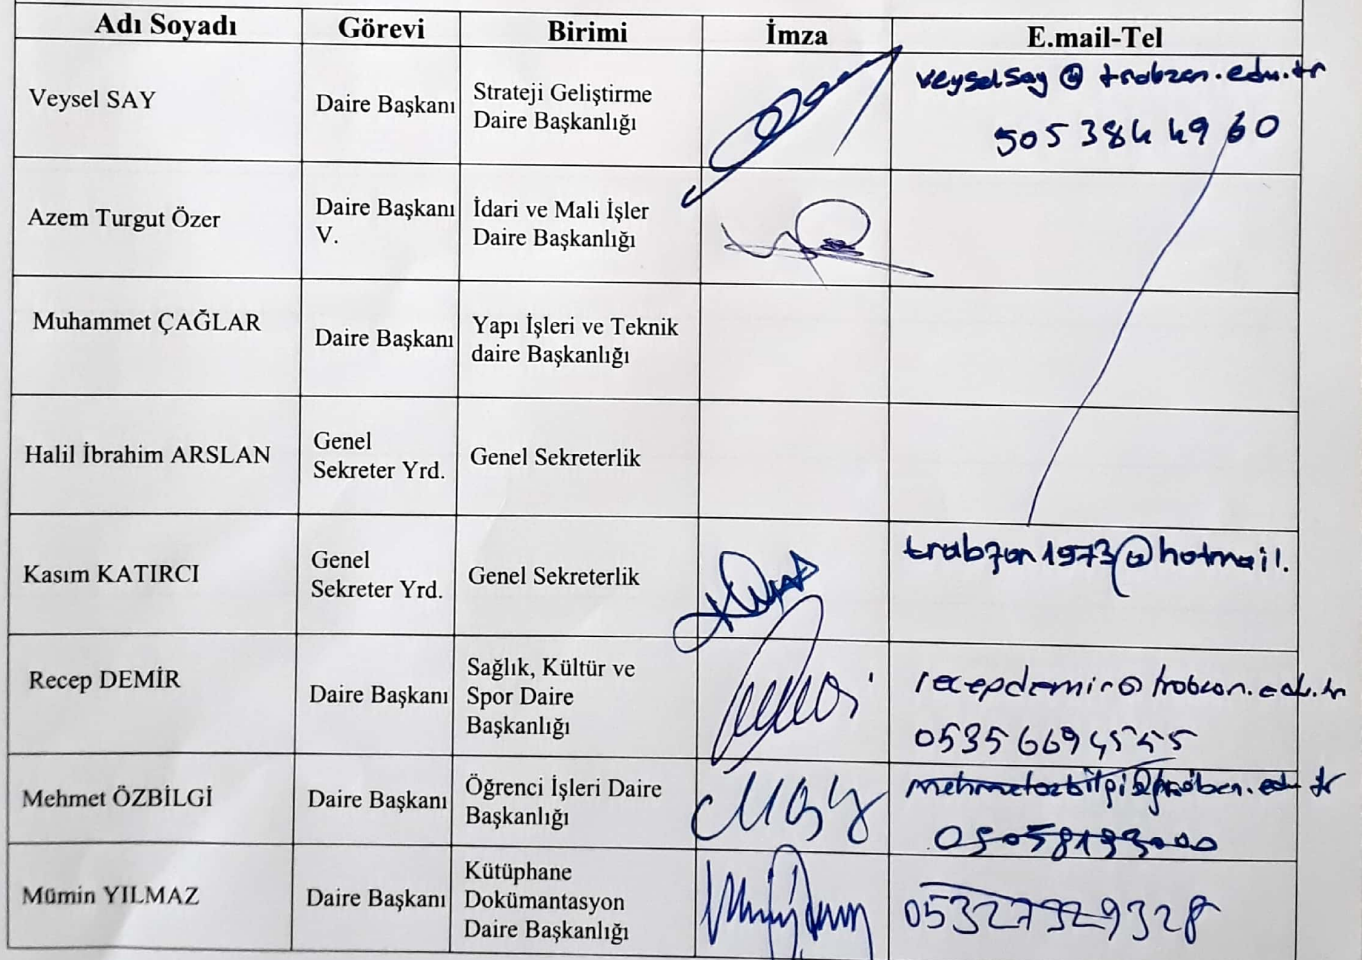 Adı Soyadı Görevi Birimi İmza E.mail-Tel
Veysel SAY Daire Başkanı Strateji Geliştirme
Daire Başkanlığı
veyselsay@trabzon.edu.tr
505 384 49 60
Azem Turgut Özer Daire Başkanı
V.
İdari ve Mali İşler
Daire Başkanlığı
Muhammet ÇAĞLAR Daire Başkanı Yapı İşleri ve Teknik
daire Başkanlığı
Halil İbrahim ARSLAN Genel
Sekreter Yrd.
Genel Sekreterlik
Kasım KATIRCI Genel
Sekreter Yrd.
Genel Sekreterlik
trabzon1973@hotmail.
Recep DEMİR Daire Başkanı Sağlık, Kültür ve
Spor Daire
Başkanlığı
recepdemir@trabzon.edu.tr
0535 669 4545
Mehmet ÖZBİLGİ Daire Başkanı Öğrenci İşleri Daire
Başkanlığı
Mümin YILMAZ Daire Başkanı Kütüphane
Dokümantasyon
Daire Başkanlığı
05327329328